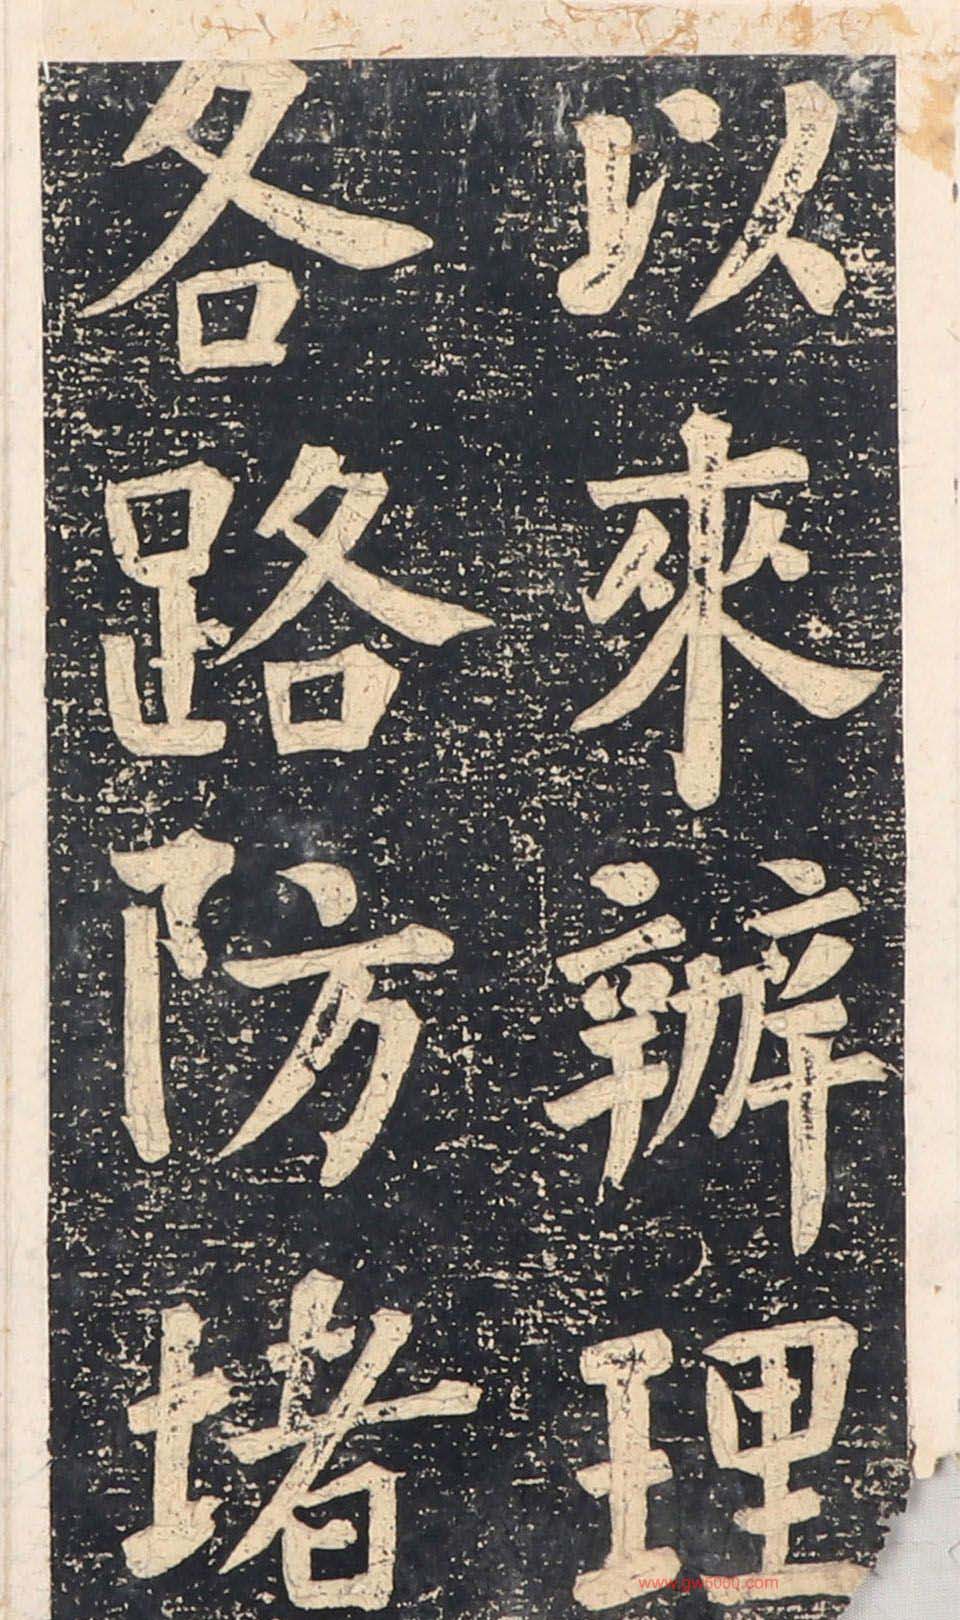 以來辦理
各路防堵
www.gw5000.com